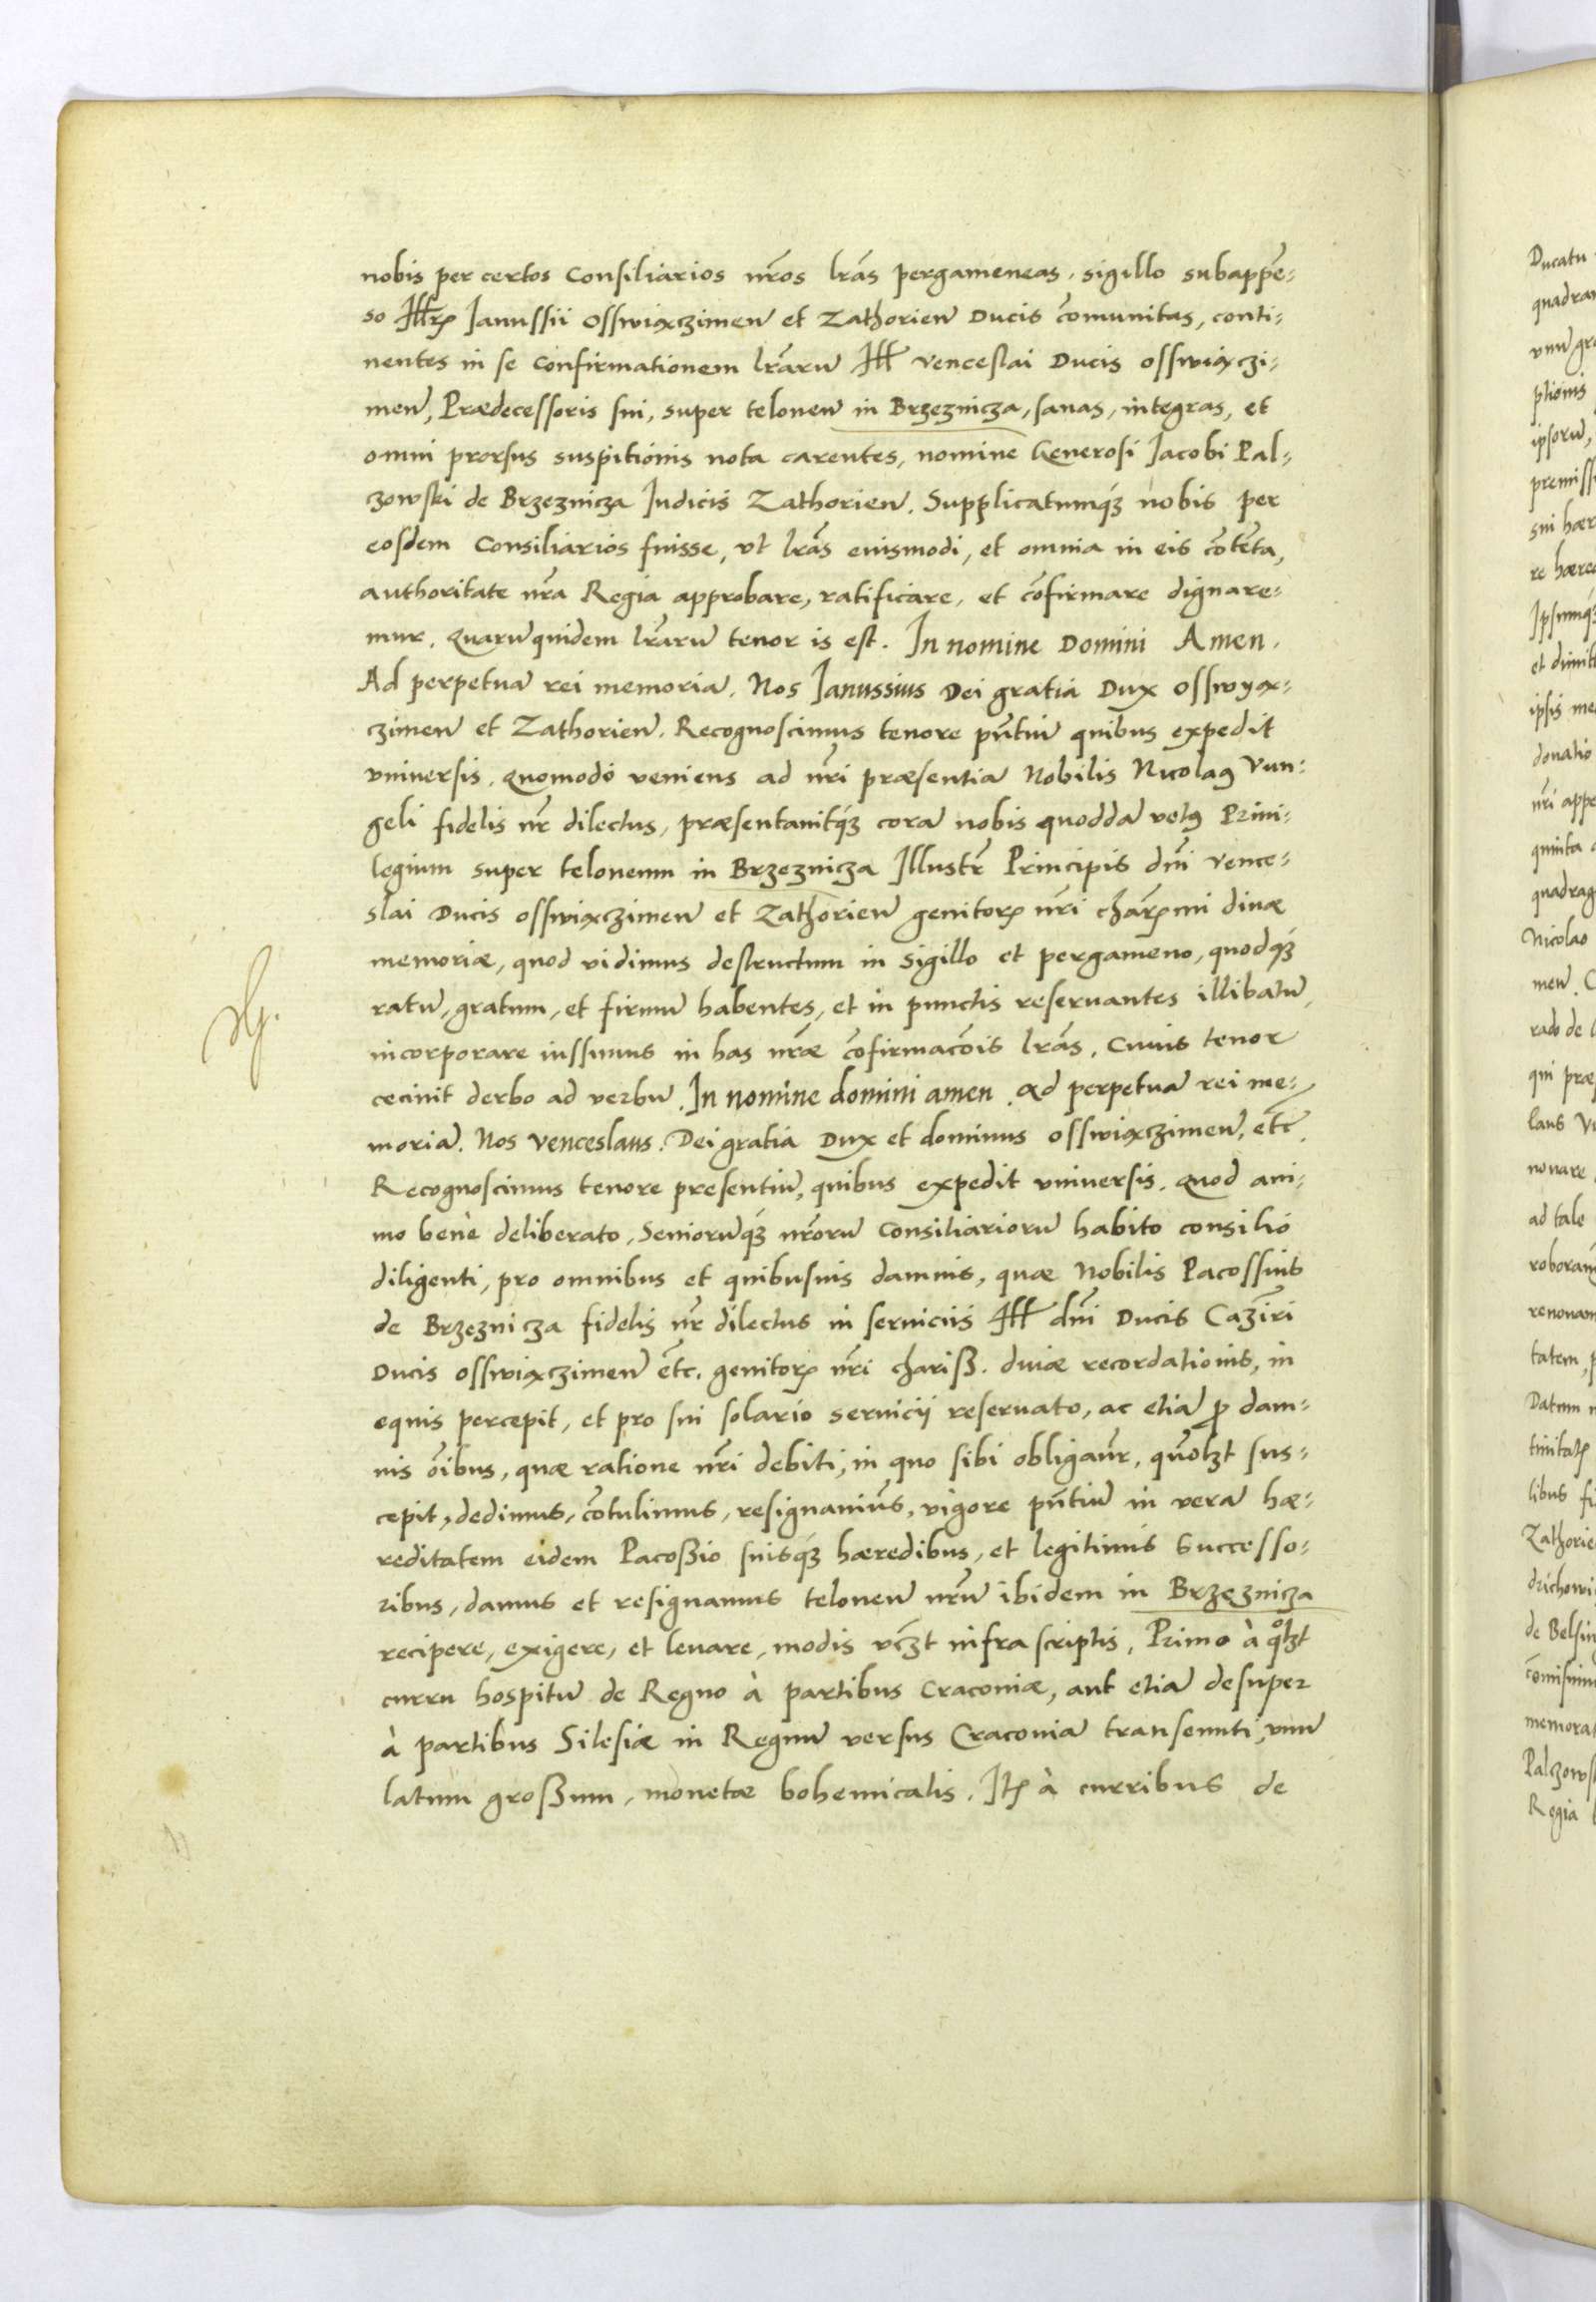 nobis per certos Consiliarios nr̃os lrãs pergameneas, sigillo subappẽ-
so Illr̃ Ianussii Osswiaxczimen̄ et Zathorien̄ Ducis cõmunitas, conti-
nentes in se confirmationem lrãrū Ill Venceslai Ducis osswiaxczi-
men̄, Prædecessoris sui, super teloneū in Brzeznicza, sanas, integras, et
omni prorsus suspitionis nota carentes, nomine Generosi Jacobi Pal-
czowski de Brzeznicza Iudicis Zathorien̄. Supplicatumqȝ nobis per
eosdem Consiliarios fuisse, vt lrãs eiusmodi, et omnia in eis cõtẽta,
authoritate nrã Regia approbare, ratificare, et cõfirmare dignare-
mur. Quarū quidem lrãrū tenor is est. In nomine Domini Amen.
Ad perpetuā rei memoriā. Nos Ianussius Dei gratia Dux Osswyax-
czimen̄ et Zathorien̄. Recognoscimus tenore pñtiū quibus expedit
vniversis. Quomodo veniens ad nr̃i præsentiā Nobilis Nicolaꝰ Vun-
geli fidelis nr̃ dilectus, præsentauitqȝ corā nobis quoddā vetꝰ Priui-
legium super teloneum in Brzeznicza Illustr̃ Principis dñi Vence-
slai Ducis osswiaxczimen̄ et Zathorien̄ genitor̃ nr̃i char̃mi diuæ
memoriæ, quod vidimus destructum in sigillo et pergameno, quodqȝ
ratū, gratum, et firmū habentes, et in punctis reseruantes illibatū,
incorporare iussimus in has nrǣ cõfirmacõis lrãs. Cuius tenor
cecinit derbo ad verbū. In nomine domini amen. Ad perpetuā rei me-
moriā. Nos Venceslaus. Dei gratia Dux et dominus osswiaxczimen̄, etc.
Recognoscimus tenore presentiū, quibus expedit vniversis. Quod ani-
mo benè deliberato, Seniorūqȝ nr̃orū Consiliariorū habito consilio
diligenti, pro omnibus et quibusuis damnis, quæ Nobilis Pacossius
de Brzeznicza fidelis nr̃ dilectus in seruiciis Ill dñi Ducis Cazĩri
Ducis osswiaxczimen̄ etc. genitor̃ nr̃i chariß. diuæ recordationis, in
equis percepit, et pro sui solario seruicij reseruato, ac etiā ꝓ dam-
nis oĩbus, quæ ratione nr̃i debiti, in quo sibi obligaur̃, qũolȝt sus-
cepit, dedimus, cõtulimus, resignauiũs, vigore pñtiū in verā hæ-
reditatem eidem Pacoßio suisqȝ hæredibus, et legitimis Successo-
ribus, damus et resignamus teloneū nrũ ibidem in Brzeznicza
recipere, exigere, et leuare, modis vcȝt infra scriptis, Primo à qͦlȝt
curru hospitū de Regno à partibus Cracoviæ, aut etiā desuper
à partibus Silesiæ in Regnū versus Cracoviā transeunti, vnū
latum großum, monetæ bohemicalis. Itp̃ à curribus de